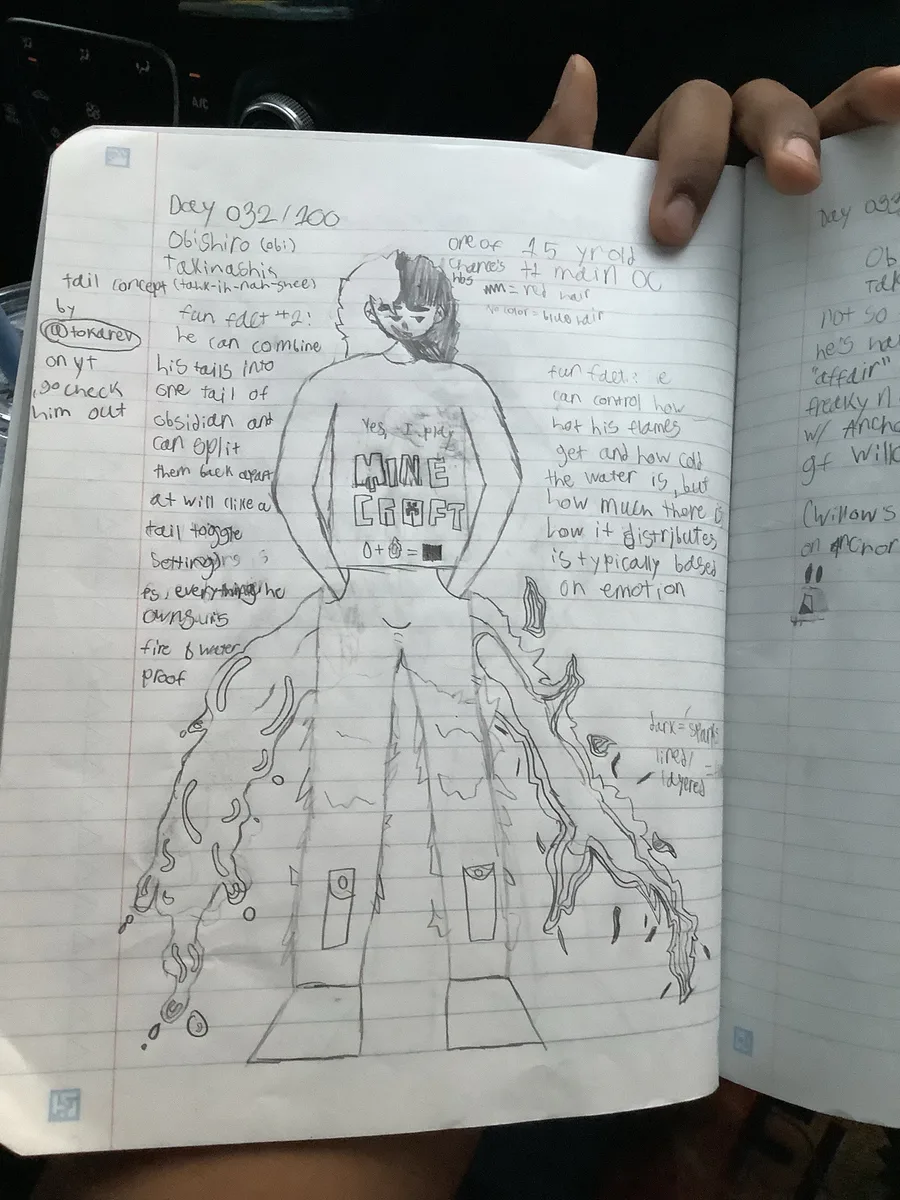 Day 032/100
Obishiro (obi)
Takinashis
(tahk-ih-nah-shee)
tail concept
by
@tokarev
on yt
go check
him out
fun fact #2:
he can combine
his tails into
one tail of
obsidian and
can split
them back apart
at will (like a
tail toggle
setting)
Ps, everything he
owns is
fire & water
proof
one of
Chance's
hbs
15 yr old
#1 main OC
= red hair
no color = blue hair
Yes, I play
MINE
CRAFT
fun fact: e
can control how
hot his flames
get and how cold
the water is, but
how much there is
how it distributes
is typically based
on emotion
dark = spark
lined/
layered =
A/C
Day 033
Ob
Tak
not so
he's ha
"affair"
freaky n
w/ Ancho
gf Willo
(Willow's
on Anchor